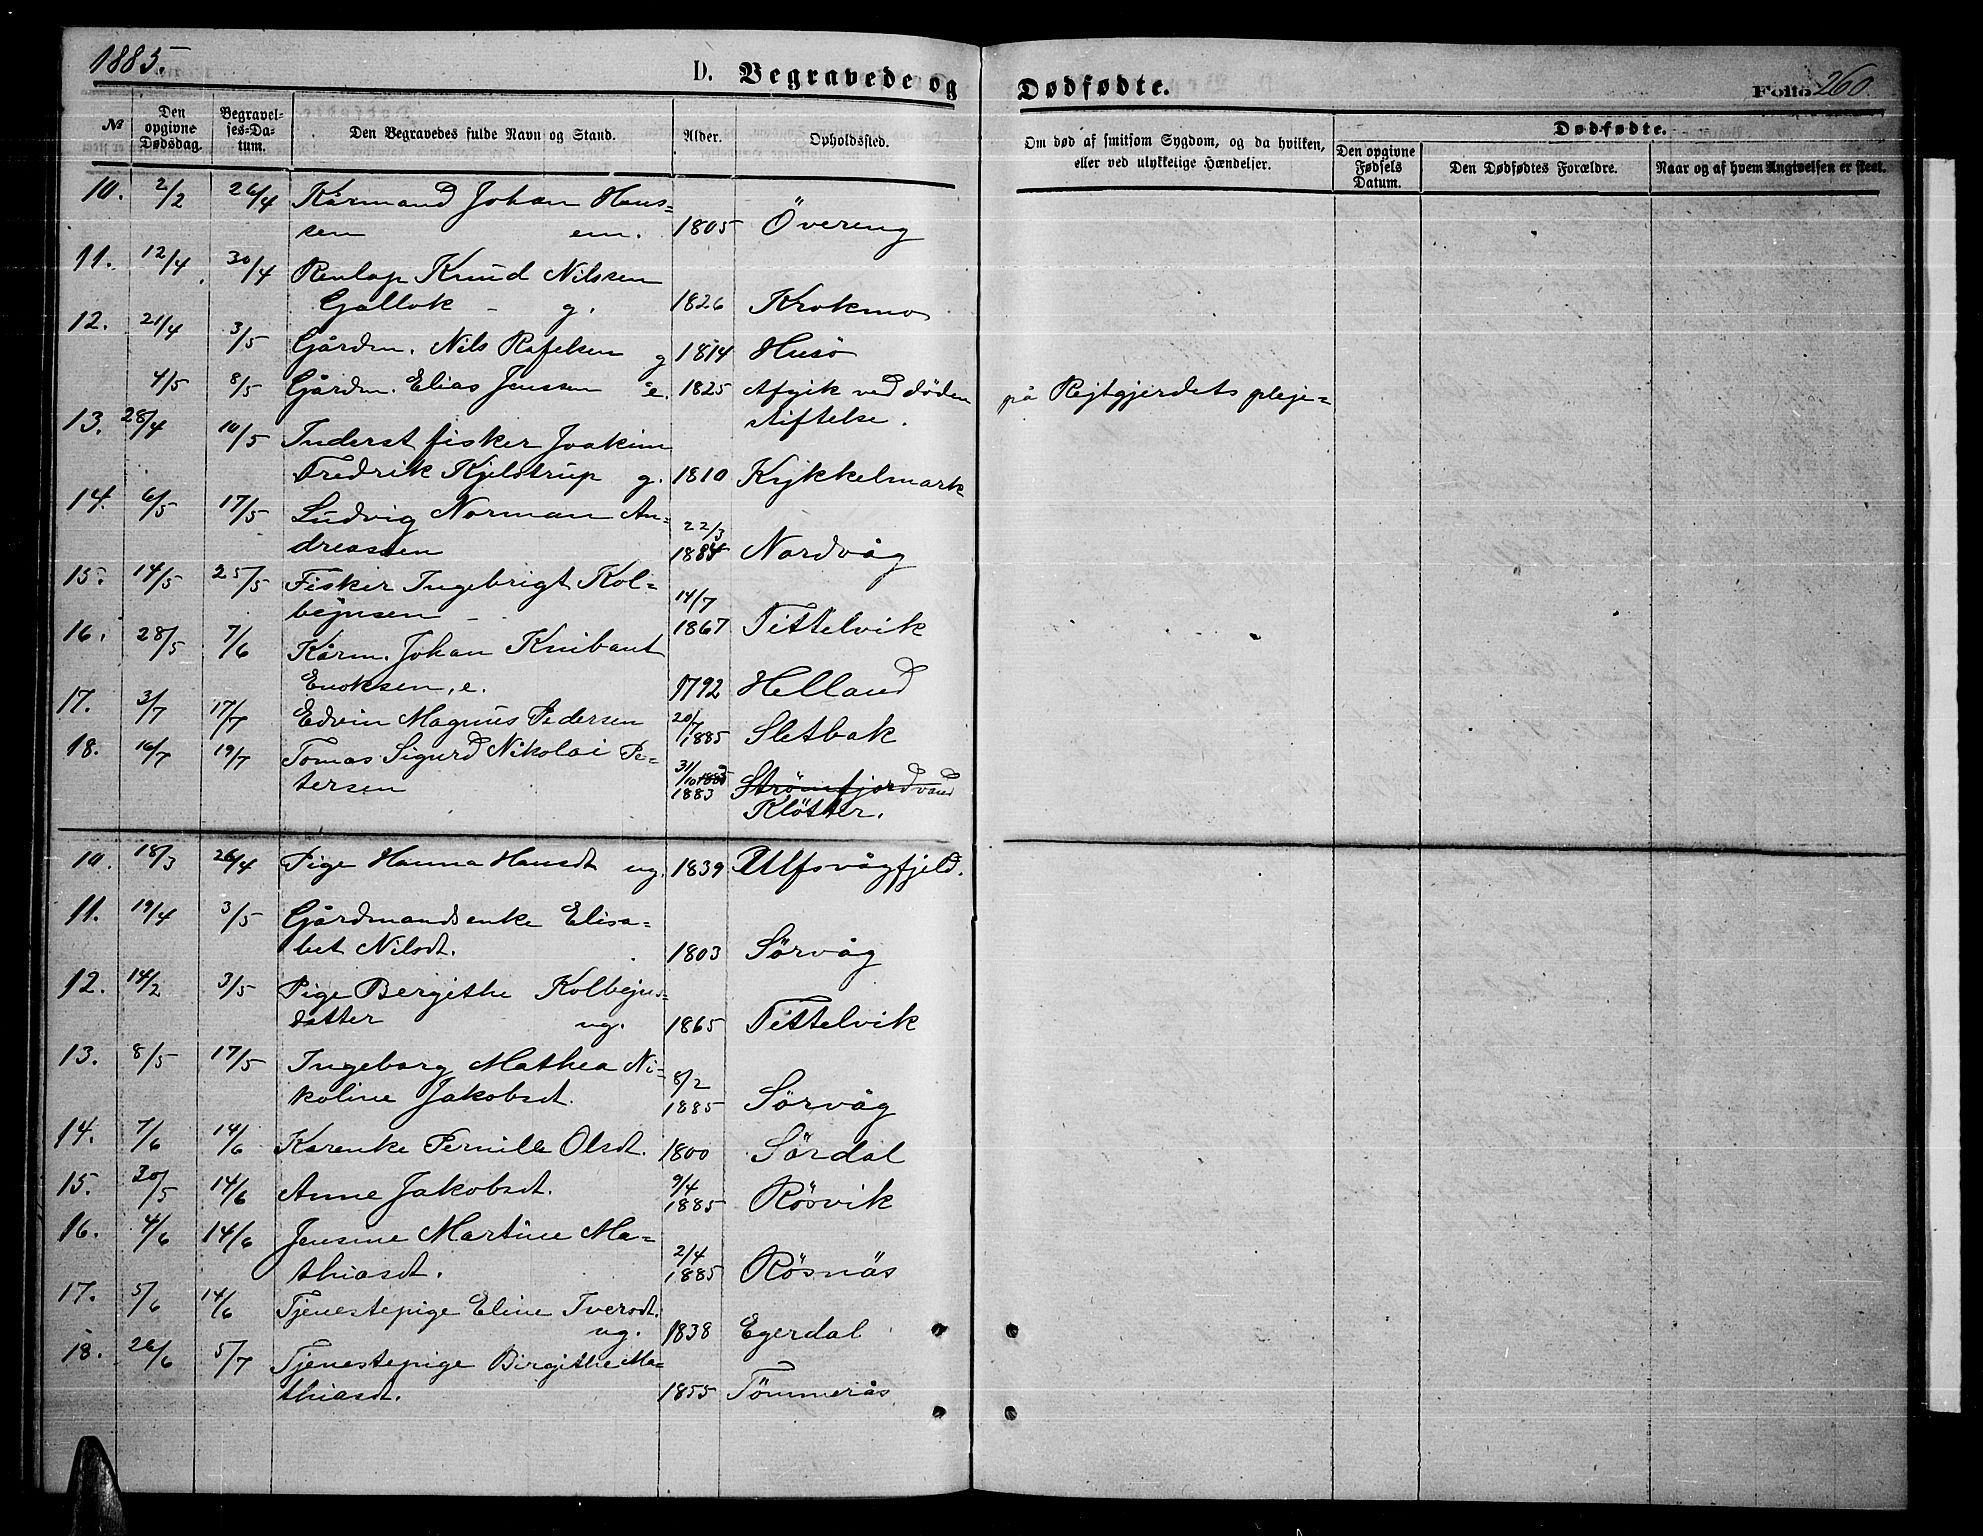 1885.
D. Begravede og Dødfødte.
Folio 260
№
Den opgivne Dødsdag.
Begravelses-Datum.
Den Begravedes fulde Navn og Stand.
Alder.
Opholdssted.
Om død af smitsom Sygdom, og da hvilken, eller ved ulykkelige Hændelser.
Dødfødte.
Den opgivne Fødsels Datum.
Den Dødfødtes Forældre.
Naar og af hvem Angivelsen er skeet.
10. 2/2 26/4 Kårmand Johan Hans=
sen em. 1805 Övereng
11. 12/4 30/4 Renlap Knud Nilssen
Gallok - g. 1826 Krokmo
12. 21/4 3/5 Gårdm. Nils Rafelsen g 1814 Husö
4/5 8/5 Gårdm. Elias Jenssen e. 1825 Afgik ved döden på Rejtgjerdets pleje=
stiftelse.
13. 28/4 10/5 Inderst fisker Joakim
Fredrik Kjelstrup g. 1810 Kykkelmark
14. 6/5 17/5 Ludvig Norman An=
dreassen 22/3 1884 Nordvåg
15. 14/5 25/5 Fisker Ingebrigt Kol=
bejnsen - 14/7 1867 Tittelvik
16. 28/5 7/6 Kårm. Johan Knibant
Enoksen, e. 1792 Helland
17. 3/7 17/7 Edvin Magnus Pedersen 20/7 1885 Sletbak
18. 16/7 19/7 Tomas Sigurd Nikolai Pe=
tersen 31/10 1883 Strömfjordvand
Klötter.
10. 18/3 26/4 Pige Hanna Hansdt ug. 1839 Ulfsvågfjeld.
11. 19/4 3/5 Gårdmandsenke Elisa=
bet Nilsdt. 1803 Sörvåg
12. 14/2 3/5 Pige Bergithe Kolbejns=
datter ug. 1865 Tittelvik
13. 8/5 17/5 Ingeborg Mathea Ni=
koline Jakobsdt. 8/2 1885 Sörvåg
14. 7/6 14/6 Karenke Pernille Olsdt. 1800 Sördal
15. 30/5 14/6 Anne Jakobsdt. 9/4 1885 Rösvik
16. 4/6 14/6 Jensine Martine Ma=
thiasdt. 2/4 1885 Rösnäs
17. 5/6 14/6 Tjenestepige Eline Iversdt.
ug. 1838 Egerdal
18. 26/6 5/7 Tjenestepige Birgithe Ma=
thiasdt. 1855 Tömmerås